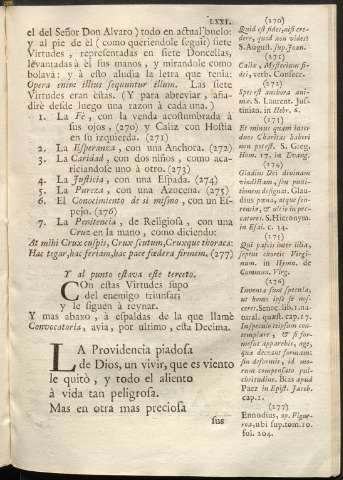 LXXI.
el del Señor Don Alvaro) todo en actual buelo:
y al pie de èl (como queriendole seguir) siete
Virtudes, representadas en siete Doncellas,
levantadas à èl sus manos, y mirandole como
bolava; y à esto aludia la letra que tenia:
Opera enim illius sequuntur illum. Las siete
Virtudes eran estas. (Y para abreviar, aña-
dirè desde luego una razon à cada una.)
1. La Fè, con la venda acostumbrada à
sus ojos, (270) y Caliz con Hostia
en su izquierda. (271)
2. La Esperanza, con una Anchora. (272)
3. La Caridad, con dos niños, como aca-
riciandole uno à otro. (273)
4. La Justicia, con una Espada. (274)
5. La Pureza, con una Azocena. (275)
6. El Conocimiento de sì mismo, con un Es-
pejo. (276)
7. La Penitencia, de Religiosa, con una
Cruz en la mano, como diciendo:
At mihi Crux cuspis, Crux scutum, Cruxque thoraca:
Hac tegar, hac feriam, hac pace fœdera firmem. (277)
Y al punto estava este terceto.
COn estas Virtudes supo
del enemigo triunfar
y le siguen à reynar.
Y mas abaxo, à espaldas de la que llamè
Convocatoria, avia, por ultimo, esta Decima.
LA Providencia piadosa
de Dios, un vivir, que es viento
le quitò, y todo el aliento
à vida tan peligrosa.
Mas en otra mas preciosa
sus
(270)
Quid est fides, nisi cre-
dere, quod non vides?
S. August. sup. Joan.
(271)
Calix, Mysterium fi-
dei, verb. Consecr.
(272)
Spes est anchora ani-
mæ. S. Laurent. Jus-
tinian. in Hebr. 6.
(273)
Et minus quam inter
duos Charitas haberi
non potest. S. Greg.
Hom. 17. in Evang.
(274)
Gladius Dei divinam
vindictam, seu puni-
tionem designat. Gla-
dius pœna, atque sen-
tentia, & ultio in pec-
catores. S. Hieronym.
in Esai. c. 34.
(275)
Qui pascis inter lilia,
septus choreis Virgi-
num. in Hymn. de
Commun. Virg.
(276)
Inventa sunt specula,
ut homo ipse se nos-
ceret. Senec. lib. 1. na-
tural. quæst. cap. 17.
(277)
Ennodius, ap. Figue-
roa, ubi sup. tom. 10.
fol. 204.